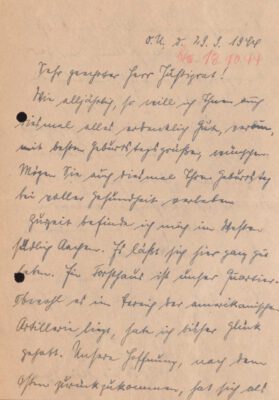 O.U., d. 29.9.1944
18.10.44
Sehr geehrter Herr Justizrat!
Wie alljährig, so will ich Ihnen auch
diesmal alles erdenklich Gute,
mit besten Geburtstagsgrüßen, wünschen.
Mögen Sie auch diesmal Ihren Geburtstag
bei voller Gesundheit verleben
Zurzeit befinde ich mich im Westen
südlich Aachen. Es läßt sich hier ganz gut
leben. Ein Forsthaus ist unser Quartier.
Obwohl es im Bereich der amerikanischen
Artillerie liegt, habe ich bisher Glück
gehabt. Unsere Hoffnung, nach dem
Osten zurückzukommen, hat sich als